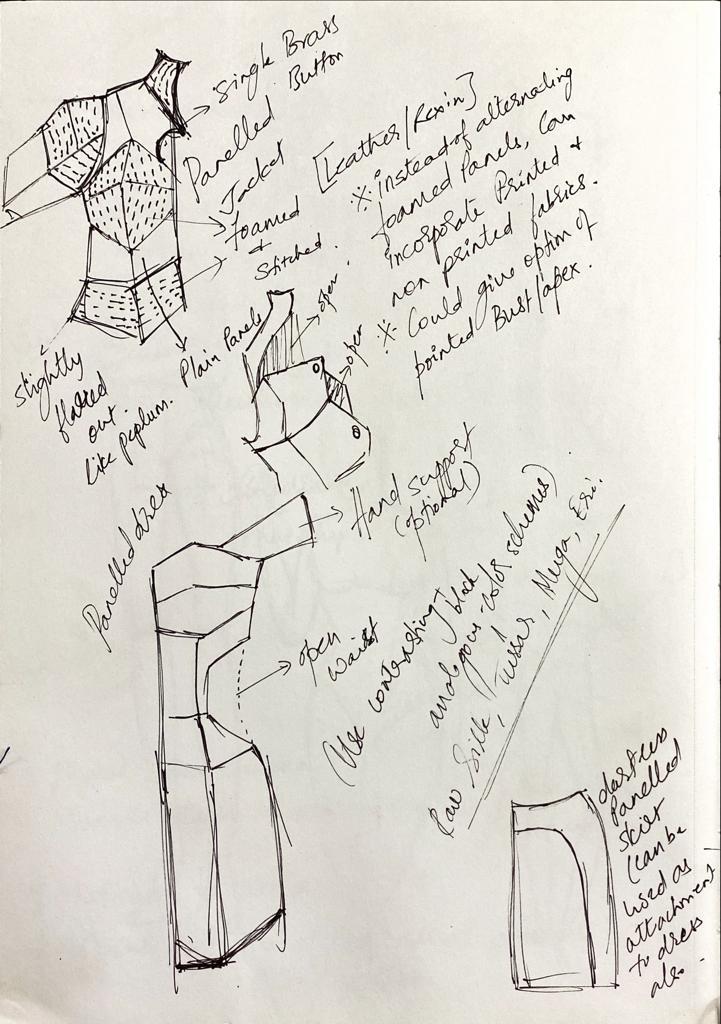 Single Brass
Button
Panelled
Jacket
[Leather/Rexin]
Foamed
+
Stitched.
※ instead of alternating
foamed Panels, Can
incorporate Printed +
non printed fabrics.
※ Could give option of
pointed Bust/apex.
Slightly
flared
out.
like peplum.
Plain Panels
open.
open
Panelled dress
Hand support
(optional)
open
waist
(Use contrasting +
black
analogous color schemes)
Raw Silk, Tussar, Muga, Eri.
Panelled
skirt
(can be
used as
attachment
to dress
also.